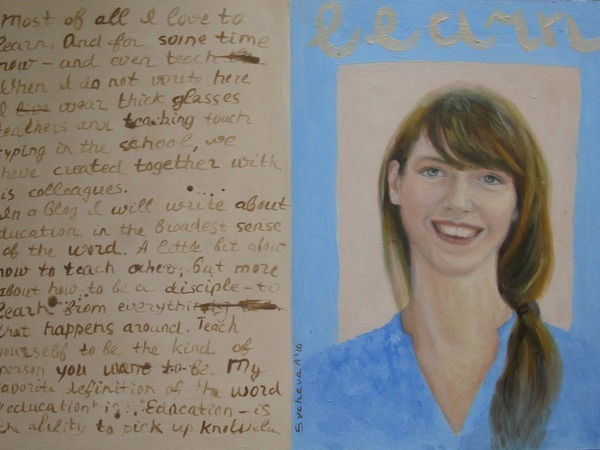 Most of all I love to
learn. And for some time
now - and even teach
When I do not write here
I live wear thick glasses
teachers and teaching touch
typing in the school, we
have created together with
is colleagues.
In a blog I will write about
education in the broadest sense
of the word. A little bit about
how to teach other, but more
about how to be a disciple - to
learn from everything
that happens around. Teach
yourself to be the kind of
person you want to be. My
favorite definition of the word
"education" is: Education - is
the ability to pick up
learn
Sycheva A '16